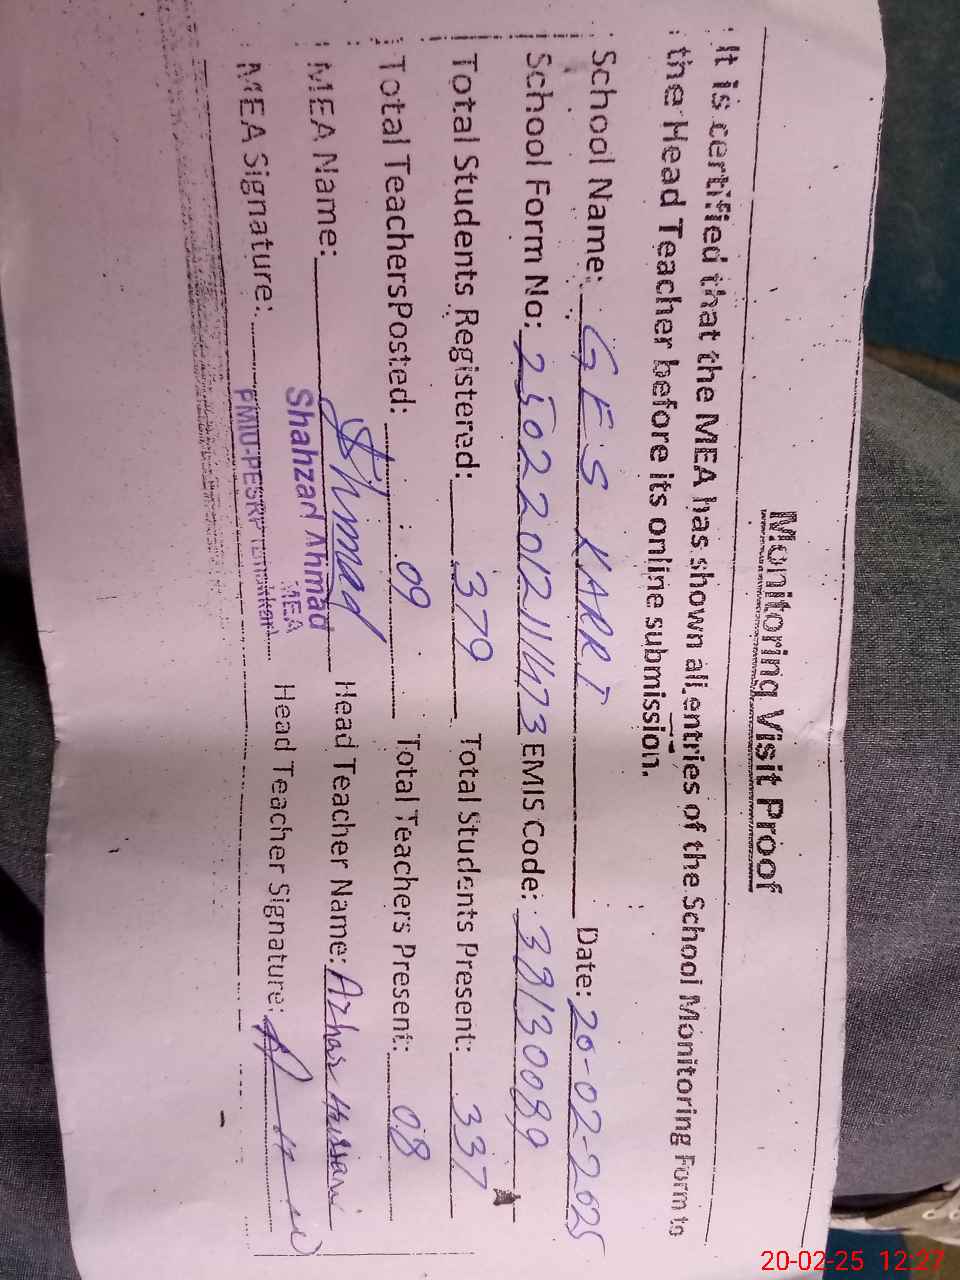 Monitoring Visit Proof
It is certified that the MEA has shown all entries of the School Monitoring Form to
the Head Teacher before its online submission.
School Name: GES KARRI Date: 20-02-2025
School Form No: EMIS Code: 38130089
Total Students Registered: 379 Total Students Present: 337
Total TeachersPosted: 09 Total Teachers Present: 08
MEA Name: Head Teacher Name: Azhar Hussain
Shahzad Ahmad
MEA
MEA Signature: PMIU-PESRP Head Teacher Signature:
20-02-25 12:27